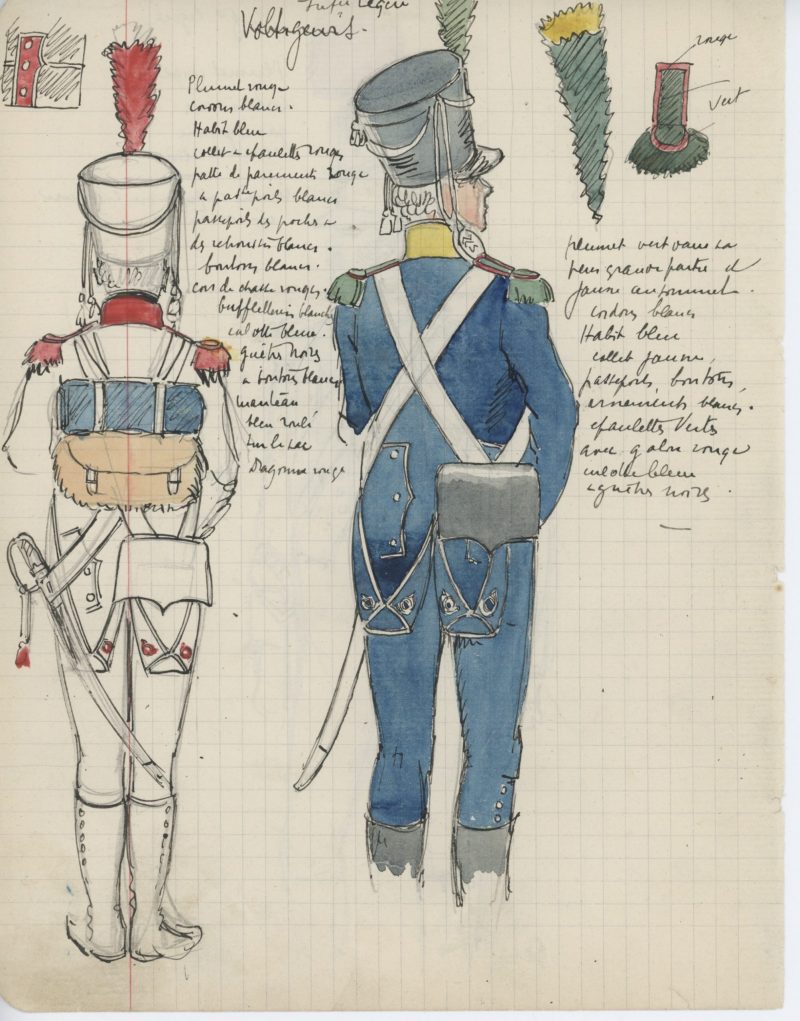 Infie Légère
Voltigeurs.
Plumet rouge
cordons blancs.
Habit bleu
collet & épaulettes rouges
patte de parements rouge
& passepoils blancs
passepoils des poches &
des retroussis blancs.
boutons blancs.
cors de chasse rouges.
buffleteries blanches
culotte bleue.
guêtres noires
à boutons blancs
manteau
bleu roulé
sur le sac
Dragonne rouge
rouge
vert
plumet vert dans sa
plus grande partie et
jaune au sommet.
cordons blancs
Habit bleu
collet jaune,
passepoils, boutons,
ornements blancs.
épaulettes vertes
avec galon rouge
culotte bleue
& guêtres noires.